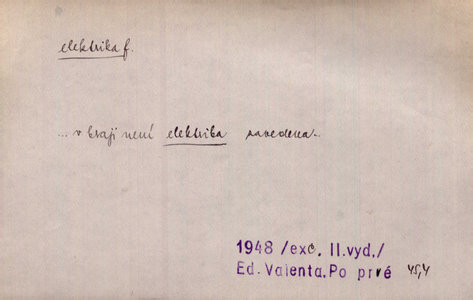 elektrika f.
... v kraji není elektrika zavedena.
1948 /exc. II.vyd./
Ed. Valenta, Po prvé 45,4